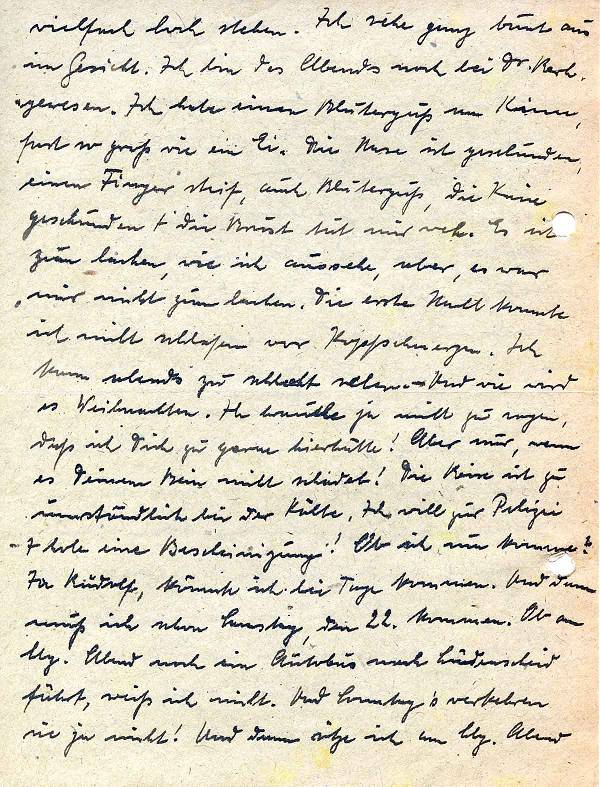 vielfach hoch stehen. Ich sehe ganz bunt aus
im Gesicht. Ich bin des Abends noch bei Dr.
gewesen. Ich habe einen Bluterguß am Kinn,
fast so groß wie ein Ei. Die Nase ist geschunden,
einen Finger steif, auch Bluterguß, die Knie
geschunden + die Brust tut mir weh. Es ist
zum lachen, wie ich aussehe, aber, es war
mir nicht zum lachen. Die erste Nacht konnte
ich nicht schlafen vor Kopfschmerzen. Ich
kann abends zu schlecht sehen. - Und wie wird
es Weihnachten. Ich brauche ja nicht zu sagen,
daß ich Dich zu gerne hierhätte! Aber nur, wenn
es Deinem Bein nicht schadet! Die Reise ist zu
umständlich bei der Kälte. Ich will zur Polizei
+ hole eine Bescheinigung! Ob ich nun komme?
Ja Rudolf, könnte ich bei Tage kommen. Und dann
muß ich schon Samstag, den 22. kommen. Ob am
Abend noch ein Autobus nach Lüdenscheid
fährt, weiß ich nicht. Und Sonntag's verkehren
sie ja nicht! Und dann sitze ich am Abend